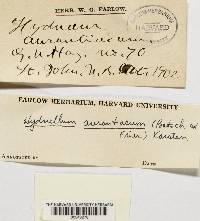 HERB. W. G. FARLOW.
Hydnum
aurantiacum
G. U. Hay, no. 70
St. John, N.B. Oct. 1902
FARLOW HERBARIUM, HARVARD UNIVERSITY
Hydnellum aurantiacum (Batsch ex
Fries) Karsten
DATE
THE HARVARD UNIVERSITY HERBARIA